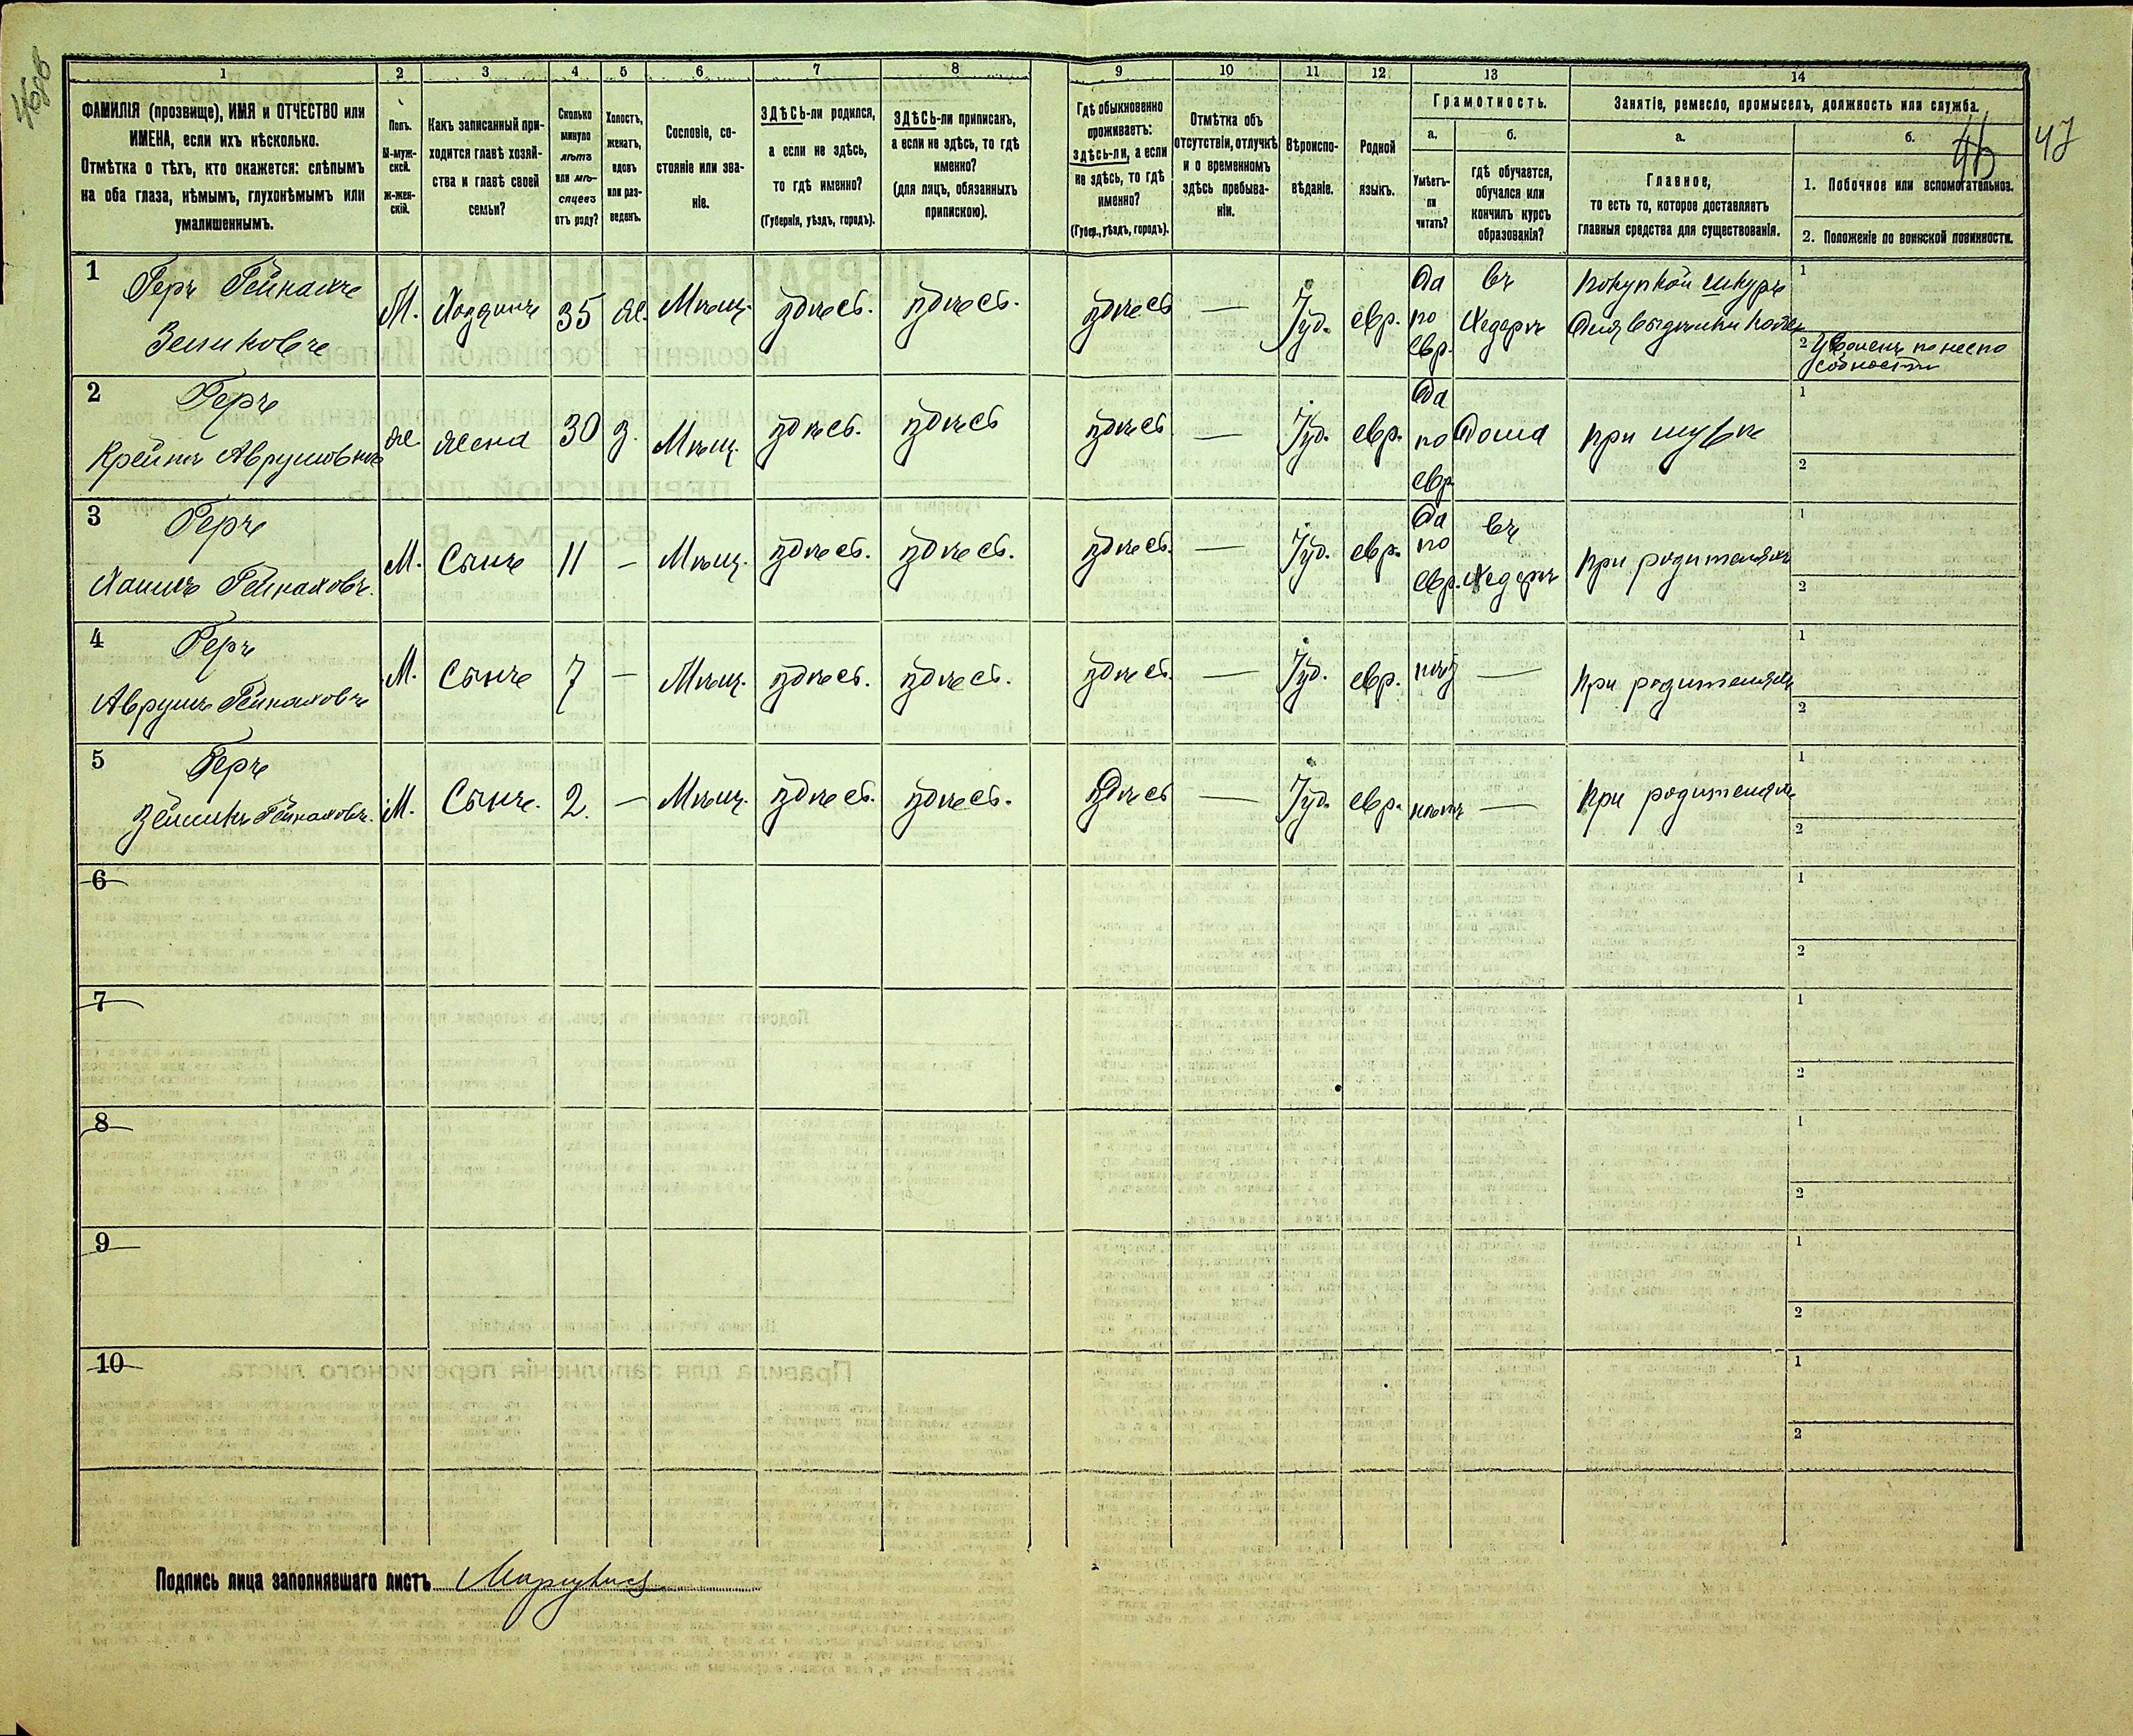 468
1
2
3
4
5
6
7
8
9
10
11
12
13
14
ФАМИЛІЯ (прозвище), ИМЯ и ОТЧЕСТВО или
ИМЕНА, если ихъ нѣсколько.
Отмѣтка о тѣхъ, кто окажется: слѣпымъ
на оба глаза, нѣмымъ, глухонѣмымъ или
умалишеннымъ.
Полъ.
М-муж-
ской.
Ж-жен-
скій.
Какъ записанный при-
ходится главѣ хозяй-
ства и главѣ своей
семьи?
Сколько
минуло
лѣтъ
или мѣ-
сяцевъ
отъ роду?
Холостъ,
женатъ,
вдовъ
или раз-
веденъ.
Сословіе, со-
стояніе или зва-
ніе.
ЗДѢСЬ-ли родился,
а если не здѣсь,
то гдѣ именно?
(Губернія, уѣздъ, городъ).
ЗДѢСЬ-ли приписанъ,
а если не здѣсь, то гдѣ
именно?
(для лицъ, обязанныхъ
припискою).
Гдѣ обыкновенно
проживаетъ:
здѣсь-ли, а если
не здѣсь, то гдѣ
именно?
(Губер., уѣздъ, городъ).
Отмѣтка объ
отсутствіи, отлучкѣ
и о временномъ
здѣсь пребыва-
ніи.
Вѣроиспо-
вѣданіе.
Родной
языкъ.
Грамотность.
а.
б.
Умѣетъ-
ли
читать?
гдѣ обучается,
обучался или
кончилъ курсъ
образованія?
Занятіе, ремесло, промыселъ, должность или служба.
а.
б.
47
Главное,
то есть то, которое доставляетъ
главныя средства для существованія.
1. Побочное или вспомогательное.
2. Положеніе по воинской повинности.
1
Геръ Гейнахъ
Зеликовъ
М.
Хозяинъ
35
Ж.
Мѣщ.
здѣсь.
здѣсь.
здѣсь
—
Іуд.
евр.
Да
по
евр.
въ
Хедерѣ
покупкой шкуръ
Для выдѣлки кожъ
1
2 Уволенъ по неспо
собности
2
Геръ
Крейна Аврумовна
Ж.
жена
30
З.
Мѣщ.
здѣсь.
здѣсь
здѣсь
—
Іуд.
евр.
Да
по
евр.
Дома
при мужѣ
1
2
3
Геръ
Хаимъ Гейнаховъ.
М.
Сынъ
11
—
Мѣщ.
здѣсь.
здѣсь.
здѣсь.
—
Іуд.
евр.
Да
по
евр.
въ
Хедерѣ
при родителяхъ
1
2
4
Геръ
Аврумъ Гейнаховъ
М.
Сынъ
7
—
Мѣщ.
здѣсь.
здѣсь.
здѣсь.
—
Іуд.
евр.
нѣтъ
—
при родителяхъ
1
2
5
Геръ
Зейликъ Гейнаховъ.
М.
Сынъ.
2.
—
Мѣщ.
здѣсь.
здѣсь.
Здѣсь
—
Іуд.
евр.
нѣтъ
—
при родителяхъ
1
2
6
1
2
7
1
2
8
1
2
9
1
2
10
1
2
Подпись лица заполнявшаго листъ